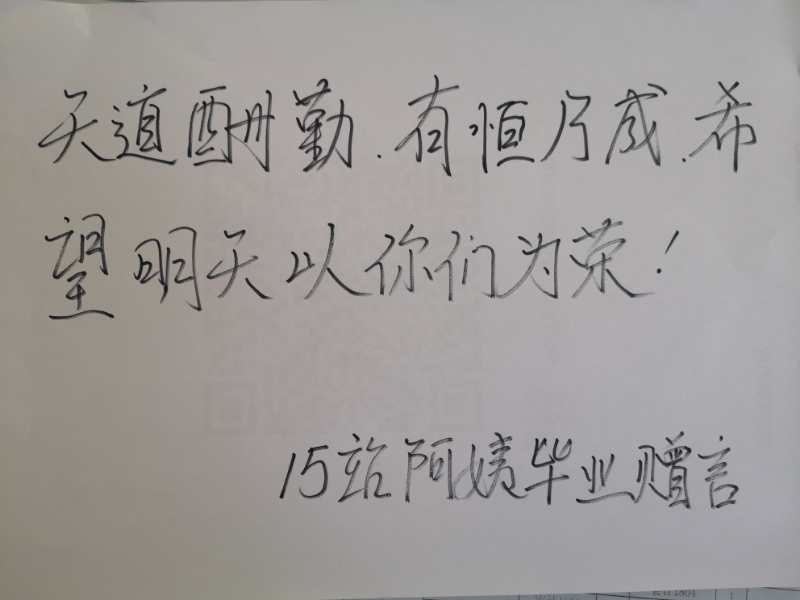 天道酬勤.有恒乃成.希
望明天以你们为荣!
15站阿姨毕业赠言